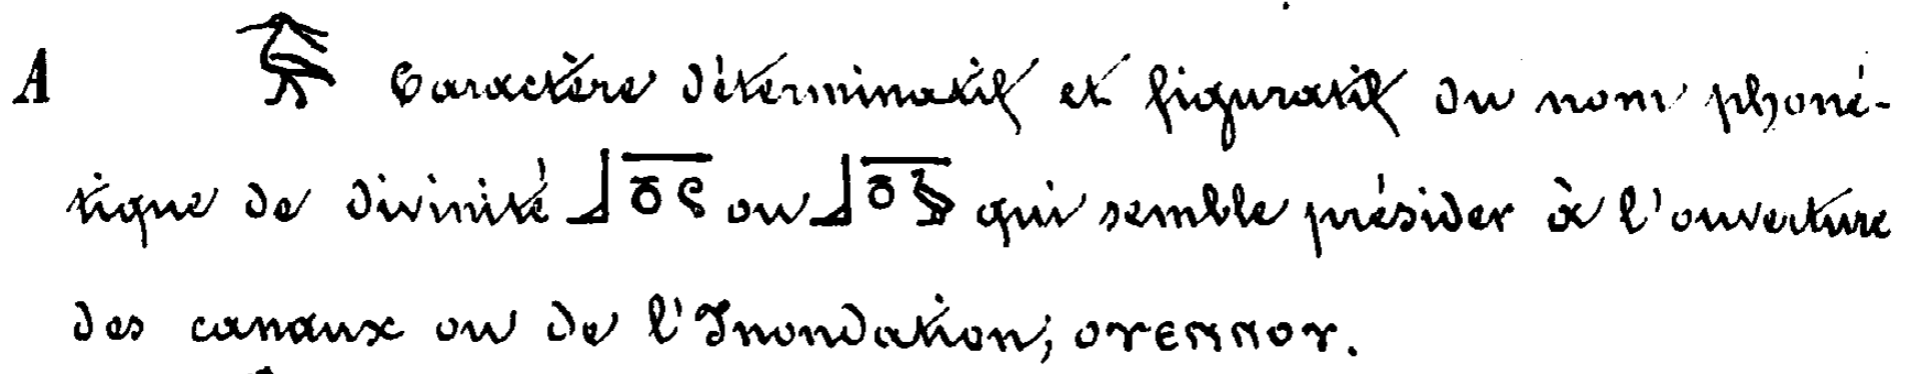 A Caractère déterminatif et figuratif du nom phoné-
tique de divinité ou qui semble présider à l'ouverture
des canaux ou de l'Inondation;